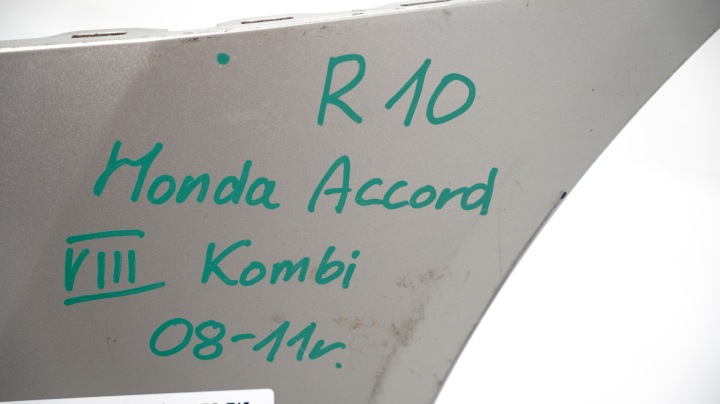 R 10
Honda Accord
VIII Kombi
08-11r.